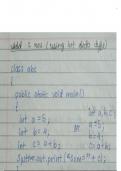 add 2 nos (using int data type)
class abc
{
public static void main()
{
int a = 5;
int b = 4;
int c = a+b;
System.out.print("Sum="+c);
int a,b,c;
a = 5;